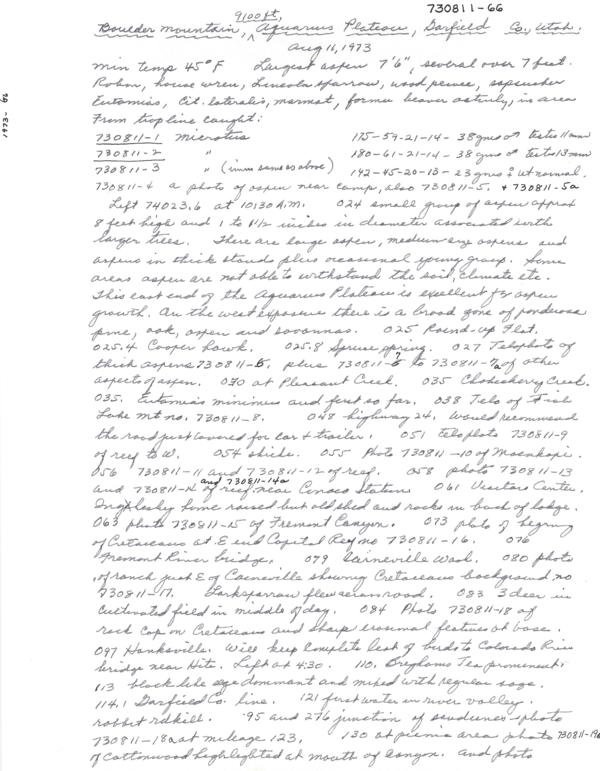 730811-66
9100 ft,
Boulder Mountain, Aquarius Plateau, Garfield Co., Utah.
Aug 11, 1973
1973- 66
Min temp 45°F Largest aspen 7'6", several over 7 feet.
Robin, house wren, Lincoln sparrow, wood pewee, sapsucker
Eutamias, Cit. lateralis, marmot, former beaver activity, in area
From trap line caught:
730811-1 Microtus 175-59-21-14-38gms ♂ testes 11mm
730811-2 " 180-61-21-14-38gms ♂ testes 13mm
730811-3 " (imm same as above) 142-45-20-13-23gms ♀ ut normal.
730811-4 a photo of aspen near camp, also 730811-5. + 730811-5a
Left 74023.6 at 10:30 A.M. 024 small group of aspen approx
8 feet high and 1 to 1 1/2 inches in diameter associated with
larger trees. There are large aspen, medium size aspens and
aspens in thick stands plus occasional young group. Some
areas aspen are not able to withstand the soil, climate etc.
This east end of the Aquarius Plateau is excellent for aspen
growth. On the west exposure there is a broad zone of ponderosa
pine, oak, aspen and savannas. 025 Round-up Flat.
025.4 Cooper hawk. 025.8 Spruce spring. 027 Telephoto of
thick aspens 730811-6, plus 730811-7 to 730811-7a of other
aspects of aspen. 030 at Pleasant Creek. 035 Chokecherry Creek.
035. Eutamias minimus and first so far. 038 Tele of Fish
Lake Mt no. 730811-8. 048 highway 24. Would recommend
the road just covered for car & trailer. 051 telephoto 730811-9
of reef to W. 054 shicke. 055 Photo 730811-10 of Moenkopi.
056 730811-11 and 730811-12 of reef. 058 photo 730811-13
and 730811-14 and 730811-14a of reef near Conoco Station 061 Visitors Center.
Inglesby home raised but old shed and rocks in back of lodge.
063 photo 730811-15 of Fremont Canyon. 073 photo of beginning
of Cretaceous at E end Capital Reef no 730811-16. 076
Fremont River bridge. 079 Caineville Wash. 080 photo
of ranch just E of Caineville showing Cretaceous background no
730811-17. Lark sparrow flew across road. 083 3 deer in
cultivated field in middle of day. 084 Photo 730811-18 of
rock cap on Cretaceous and sharp erosional features at base.
097 Hanksville. Will keep complete list of birds to Colorado River
bridge near Hite. Left at 4:30. 110. Brigham Tea prominent.
113 black like sage dominant and mixed with regular sage.
114.1 Garfield Co. line. 121 first water in river valley.
rabbit rdkill. 95 and 276 junction of photo
730811-18a at mileage 123. 130 at picnic area photo 730811-19a
of Cottonwood highlighted at mouth of canyon. and photo